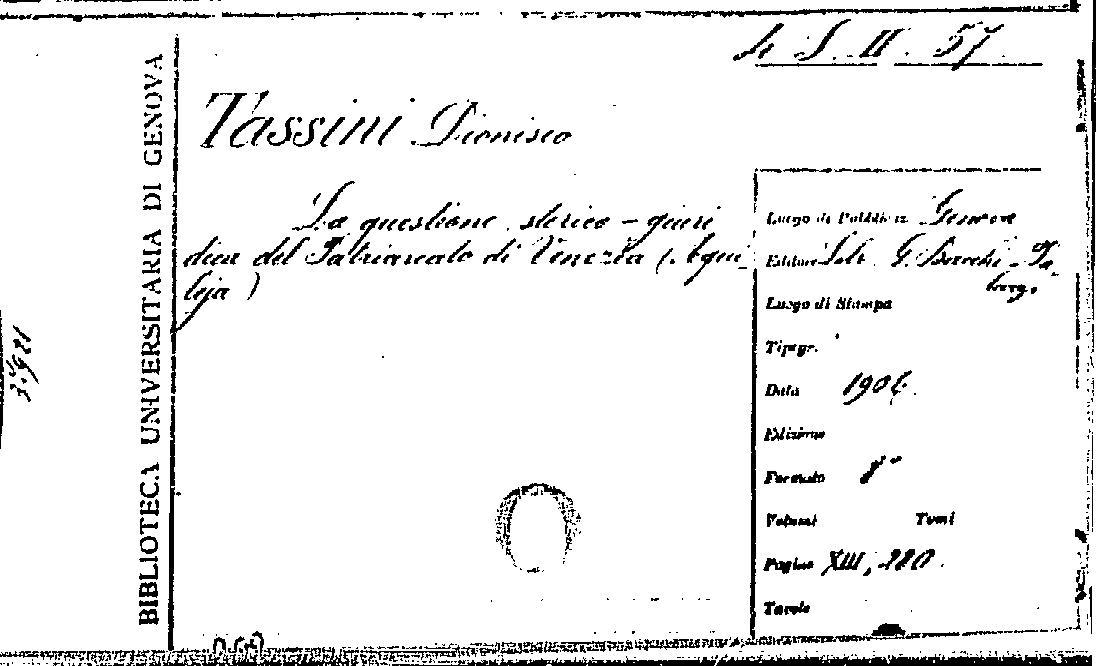 4 S. II. 57
BIBLIOTECA UNIVERSITARIA DI GENOVA
Tassini Dionisio
La questione storico-giuri
dica del Patriarcato di Venezia (Aqui-
leja)
Luogo di Pubblicaz. Genova
Editore G.
Luogo di Stampa
Tipogr.
Data 190
Edizione
Formato 8°
Volumi Tomi
Pagine XIII,
Tavole